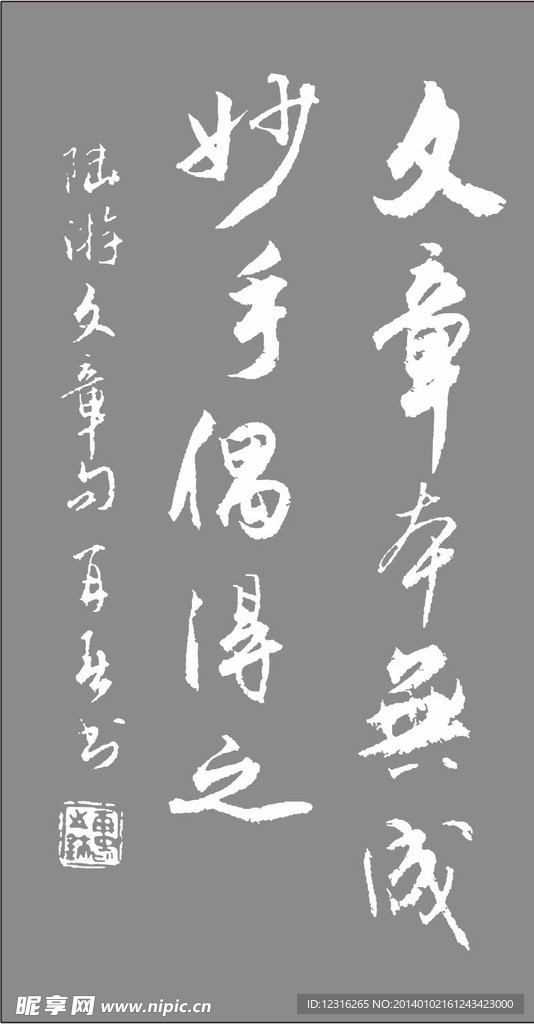 文章本無成
妙手偶得之
陆游文章句 再 书
昵享网 www.nipic.cn
ID:12316265 NO:20140102161243423000